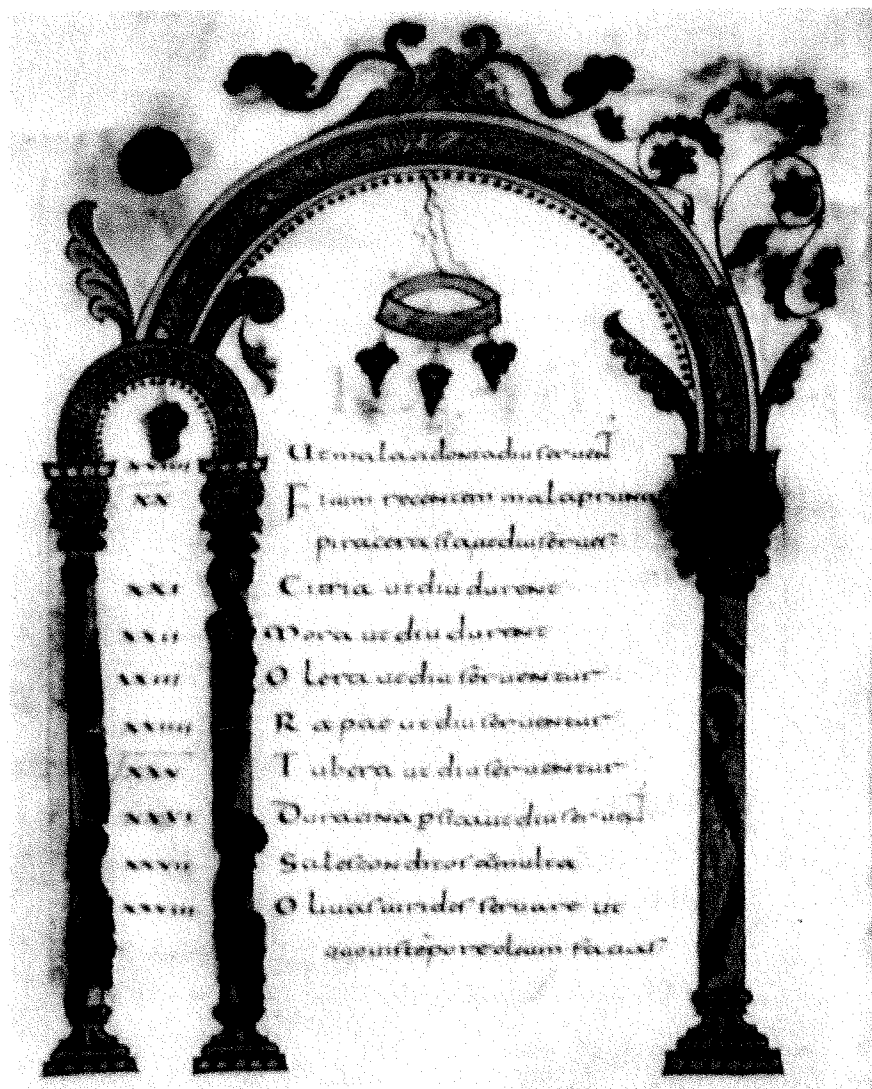 xviiii Ut mala diu seruent
XX Ficum recentem mala pruna
pira cerasia ut diu serues
xxi Citria ut diu durent
xxii Mora ut diu durent
xxiii Olera ut diu seruentur
xxiiii Rapae ut diu seruentur
xxv Tubera ut diu seruentur
xxvi Duracina psica ut diu seruent
xxvii Sales conditos ad multa
xxviii Oliuas uirides seruare ut
quouis tepore oleum facias